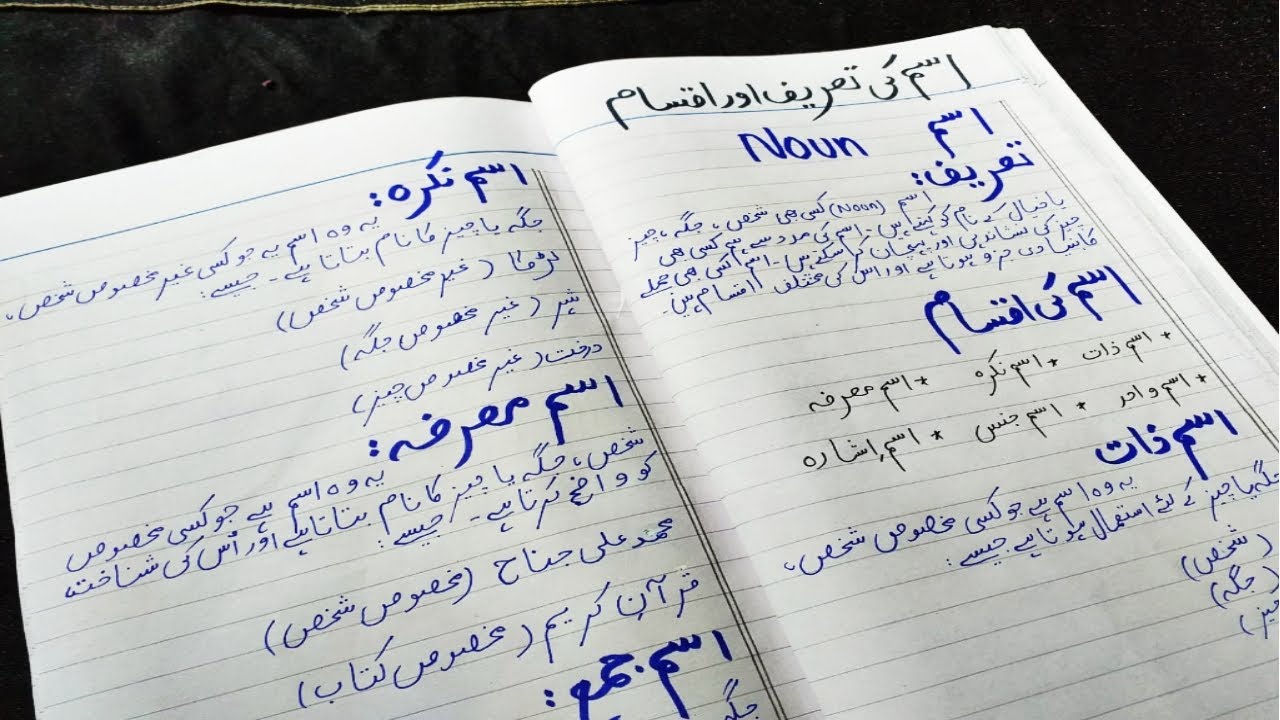 اسم کی تعریف اور اقسام
اسم Noun
تعریف:
اسم (Noun) کسی بھی شخص، جگہ، چیز
یا خیال کے نام کو کہتے ہیں۔ اسم کی مدد سے ہم کسی بھی
چیز کی نشاندہی اور پہچان کر سکتے ہیں۔ اسم کسی بھی جملے
کا بنیادی جزو ہوتا ہے اور اس کی مختلف اقسام ہیں۔
اسم کی اقسام
* اسم ذات * اسم نکرہ * اسم معرفہ
* اسم واحد * اسم جنس * اسم اشارہ
اسم ذات
یہ وہ اسم ہے جو کسی مخصوص شخص،
جگہ یا چیز کے لئے استعمال ہوتا ہے جیسے:
(شخص)
(جگہ)
چیز)
اسم نکرہ:
یہ وہ اسم یے جو کسی غیر مخصوص شخص،
جگہ یا چیز کا نام بتاتا ہے۔ جیسے:
لڑکا (غیر مخصوص شخص)
شہر (غیر مخصوص جگہ)
درخت (غیر مخصوص چیز)
اسم معرفہ:
یہ وہ اسم ہے جو کسی مخصوص
شخص، جگہ یا چیز کا نام بتاتا ہے اور اُس کی شناخت
کو واضح کرتا ہے۔ جیسے:
محمد علی جناح (مخصوص شخص)
قرآن کریم (مخصوص کتاب)
اسم جمع:
جگہ